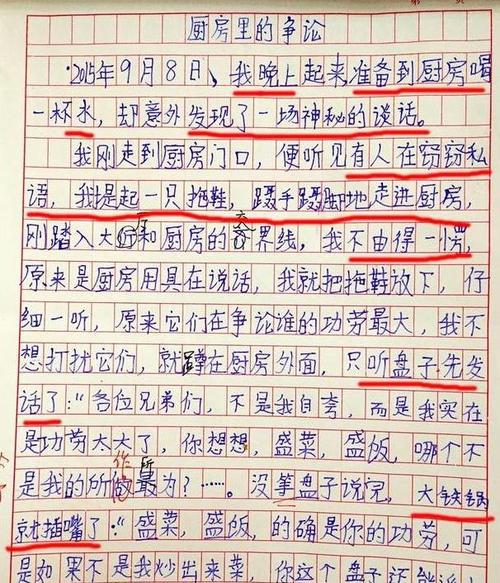 厨房里的争论
2015年9月8日，我晚上起来准备到厨房喝
一杯水，却意外发现了一场神秘的谈话。
我刚走到厨房门口，便听见有人在窃窃私
语，我提起一只拖鞋，蹑手蹑脚地走进厨房，
刚踏入大厅和厨房的交界线，我不由得一愣，
原来是厨房用具在说话，我就把拖鞋放下，仔
细一听，原来它们在争论谁的功劳最大，我不
想打扰它们，就蹲在厨房外面，只听盘子先发
话了："各位兄弟们，不是我自夸，而是我实在
是功劳大大了，你想想，盛菜，盛饭，哪个不
是我的所作所为？……。没等盘子说完，大铁锅
就插嘴了："盛菜，盛饭，的确是你的功劳，可
是如果不是我炒出来菜，你这个盘子还